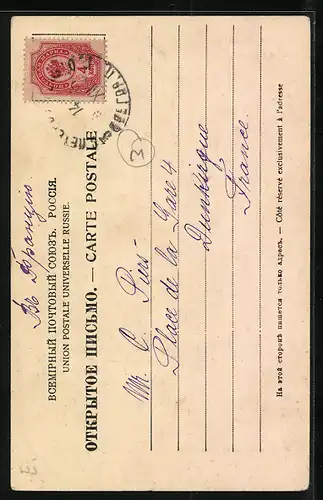 Въ Францiю
ВСЕМIРНЫЙ ПОЧТОВЫЙ СОЮЗЪ. РОССIЯ.
UNION POSTALE UNIVERSELLE RUSSIE.
ОТКРЫТОЕ ПИСЬМО. — CARTE POSTALE
Mr. C. Piers-
Place de la Gare 4
Dunkerque
France.
На этой сторонѣ пишется только адресъ. — Côté réservé exclusivement à l'adresse
3